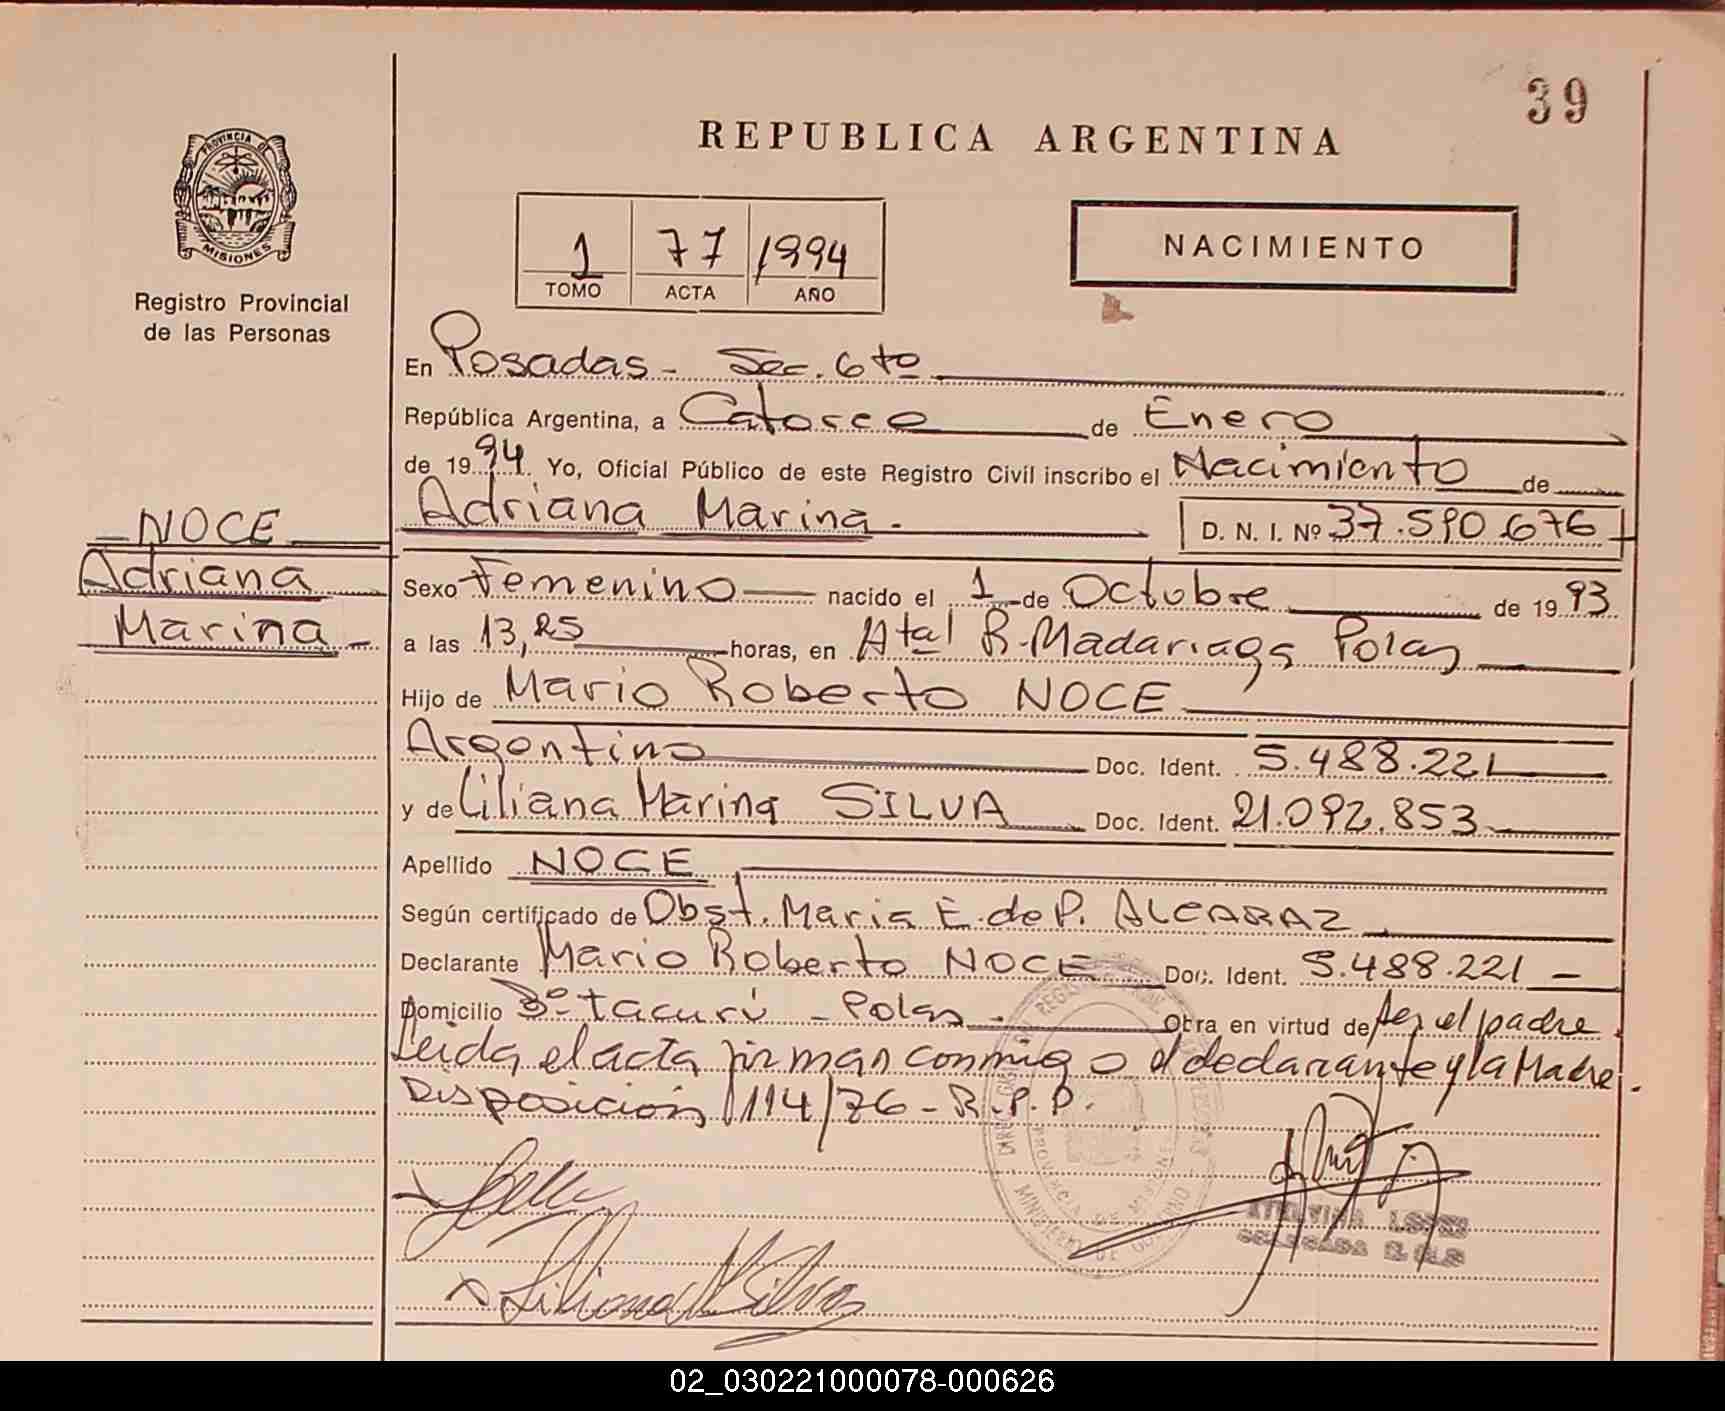 39
REPUBLICA ARGENTINA
PROVINCIA DE
MISIONES
Registro Provincial
de las Personas
1 77 1994
TOMO ACTA AÑO
NACIMIENTO
En Posadas - Sec. 6ta
República Argentina, a Catorce de Enero
de 1994 Yo, Oficial Público de este Registro Civil inscribo el Nacimiento de
Adriana Marina. D. N. I. Nº 37.590.676
NOCE
Adriana
Marina
Sexo Femenino nacido el 1 de Octubre de 1993
a las 13,25 horas, en R. Madariaga Pdas
Hijo de Mario Roberto NOCE
Argentino Doc. Ident. 5.488.221
y de Liliana Marina SILVA Doc. Ident. 21.092.853
Apellido NOCE
Según certificado de Obst. Maria E. de P. ALCARAZ
Declarante Mario Roberto NOCE Doc. Ident. 5.488.221
Domicilio Bº Tacurú - Pdas - Obra en virtud de Ser el padre.
Leida el acta firman conmigo el declarante y la Madre.
Disposición 114/76 - R.P.P.
Liliana M Silva
02_030221000078-000626